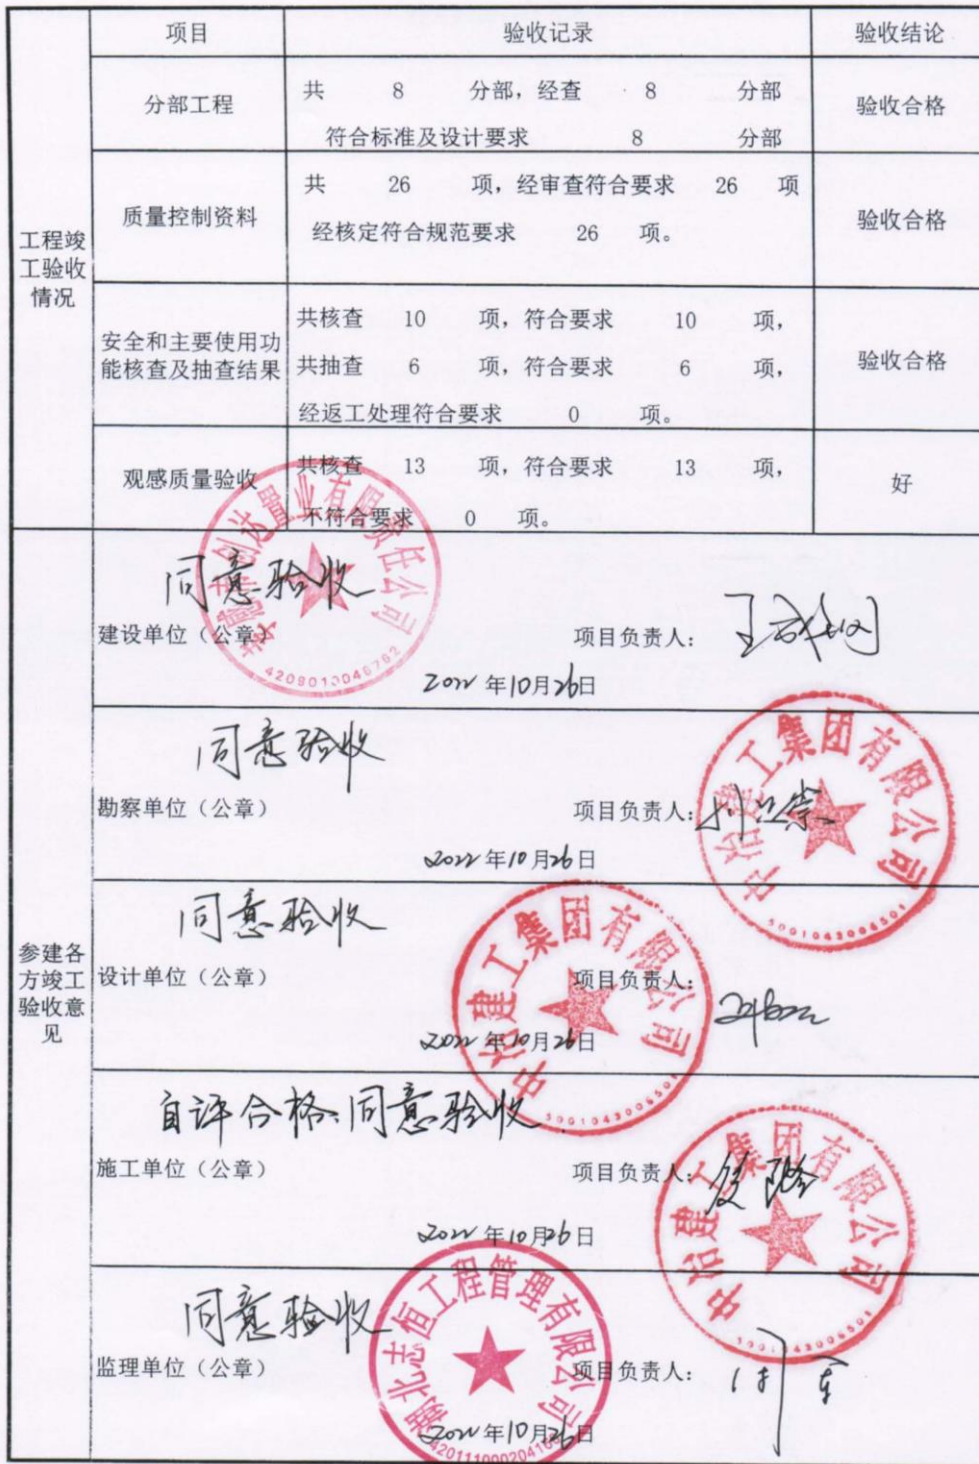 项目 验收记录 验收结论
工程竣工验收情况
分部工程
共 8 分部，经查 8 分部
符合标准及设计要求 8 分部
验收合格
质量控制资料
共 26 项，经审查符合要求 26 项
经核定符合规范要求 26 项。
验收合格
安全和主要使用功能核查及抽查结果
共核查 10 项，符合要求 10 项，
共抽查 6 项，符合要求 6 项，
经返工处理符合要求 0 项。
验收合格
观感质量验收
共核查 13 项，符合要求 13 项，
不符合要求 0 项。
好
参建各方竣工验收意见
同意验收
建设单位（公章） 项目负责人：
2022年10月26日
达置业有限责任公司
同意验收
勘察单位（公章） 项目负责人：
2022年10月26日
中佑建工集团有限公司
同意验收
设计单位（公章） 项目负责人：
2022年10月26日
中佑建工集团有限公司
自评合格、同意验收
施工单位（公章） 项目负责人：
2022年10月26日
中佑建工集团有限公司
同意验收
监理单位（公章） 项目负责人：
2022年10月26日
湖北志恒工程管理有限公司